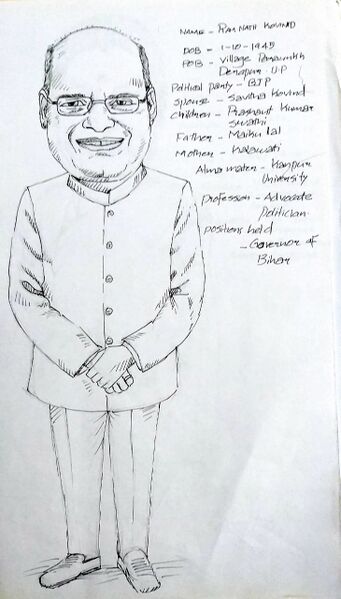 NAME - RAM NATH KOVIND
DOB = 1-10-1945
POB - Village Paraunkh
Derapur U.P
Political party - BJP
Spouse - Savitha Kovind
Children - Prashant Kumar
Swathi
Father - Maiku lal
Mother - Kalawati
Alma mater - Kanpur
University
Profession - Advocate
Politician
positions held
- Governor of
Bihar